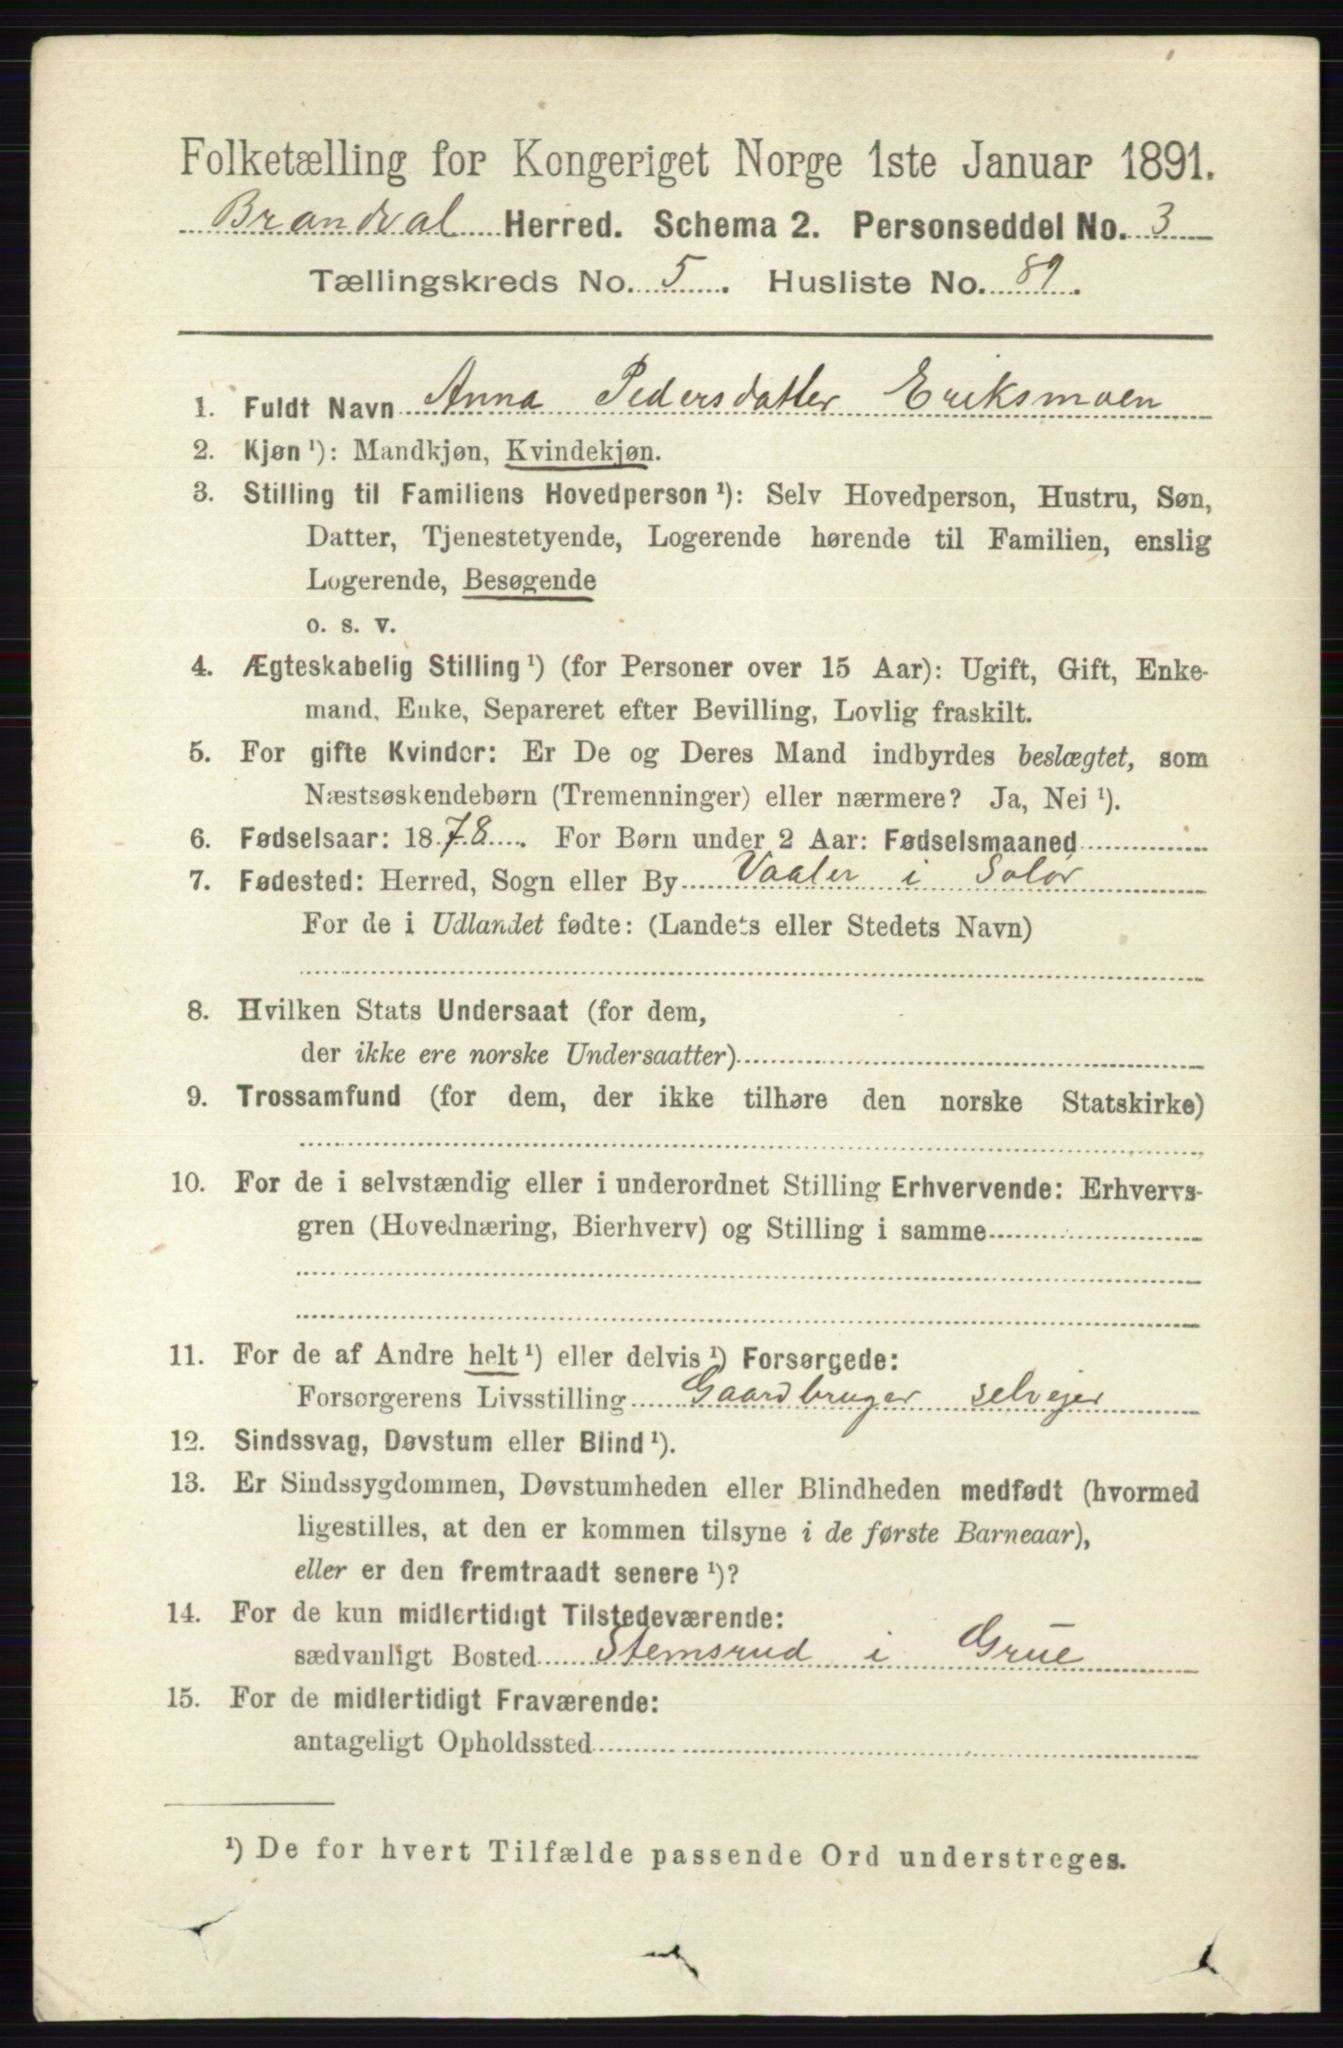 Folketælling for Kongeriget Norge 1ste Januar 1891.
Brandval Herred. Schema 2. Personseddel No. 3
Tællingskreds No. 5. Husliste No. 89.
1. Fuldt Navn Anna Pedersdatter Eriksmoen
2. Kjøn ¹): Mandkjøn, Kvindekjøn.
3. Stilling til Familiens Hovedperson ¹): Selv Hovedperson, Hustru, Søn,
Datter, Tjenestetyende, Logerende hørende til Familien, enslig
Logerende, Besøgende
o. s. v.
4. Ægteskabelig Stilling ¹) (for Personer over 15 Aar): Ugift, Gift, Enke-
mand, Enke, Separeret efter Bevilling, Lovlig fraskilt.
5. For gifte Kvinder: Er De og Deres Mand indbyrdes beslægtet, som
Næstsøskendebørn (Tremenninger) eller nærmere? Ja, Nei ¹).
6. Fødselsaar: 1878. For Børn under 2 Aar: Fødselsmaaned
7. Fødested: Herred, Sogn eller By Vaaler i Solør
For de i Udlandet fødte: (Landets eller Stedets Navn)
8. Hvilken Stats Undersaat (for dem,
der ikke ere norske Undersaatter)
9. Trossamfund (for dem, der ikke tilhøre den norske Statskirke)
10. For de i selvstændig eller i underordnet Stilling Erhvervende: Erhvervs-
gren (Hovednæring, Bierhverv) og Stilling i samme
11. For de af Andre helt ¹) eller delvis ¹) Forsørgede:
Forsørgerens Livsstilling Gaardbruger selvejer
12. Sindssvag, Døvstum eller Blind ¹).
13. Er Sindssygdommen, Døvstumheden eller Blindheden medfødt (hvormed
ligestilles, at den er kommen tilsyne i de første Barneaar),
eller er den fremtraadt senere ¹)?
14. For de kun midlertidigt Tilstedeværende:
sædvanligt Bosted Stemsrud i Grue
15. For de midlertidigt Fraværende:
antageligt Opholdssted
¹) De for hvert Tilfælde passende Ord understreges.